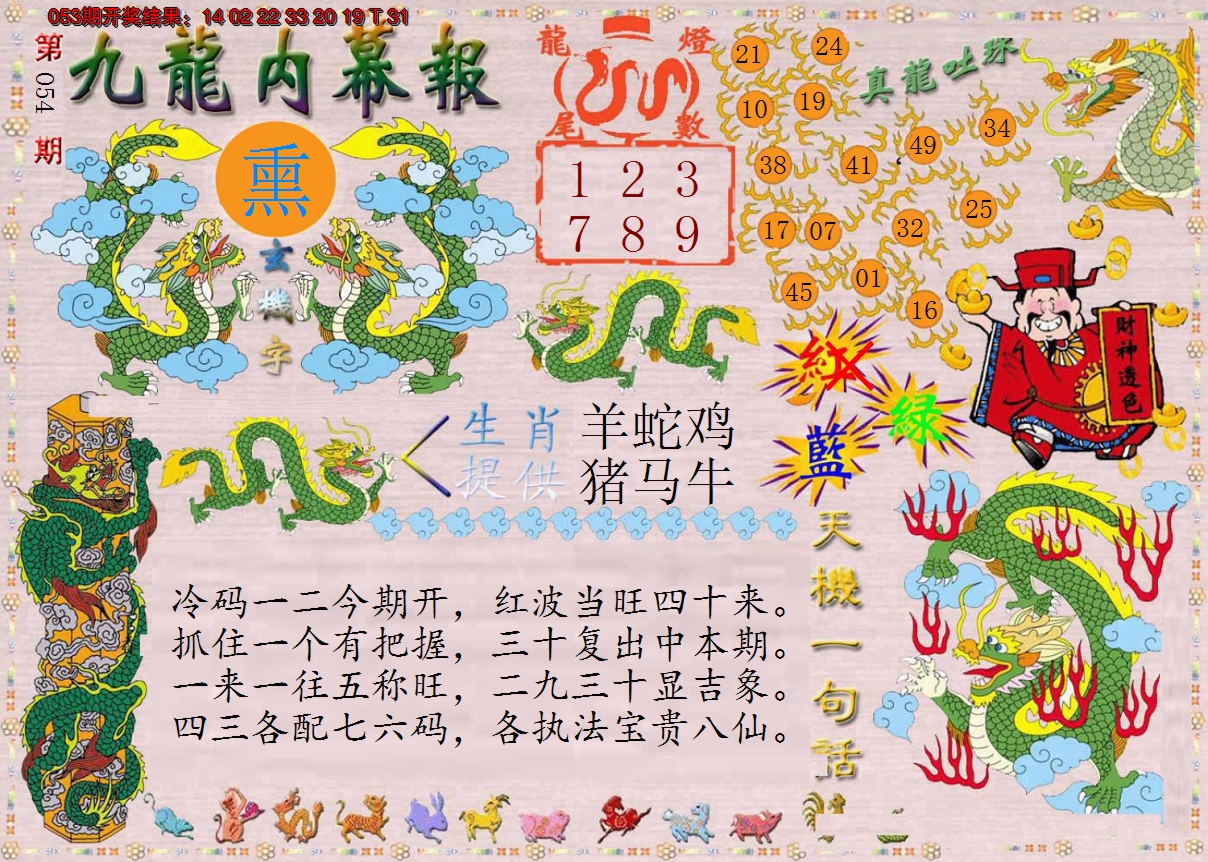 053期开奖结果：14 02 22 33 20 19 T 31
第054期
九龍内幕報
熏
玄機字
龍燈
尾數
1 2 3
7 8 9
真龍吐珠
21 24
10 19
38 41 49 34
17 07 32 25
45 01 16
財神透色
紅
綠
藍
生肖 羊蛇鸡
提供 猪马牛
天機一句话
冷码一二今期开，红波当旺四十来。
抓住一个有把握，三十复出中本期。
一来一往五称旺，二九三十显吉象。
四三各配七六码，各执法宝贵八仙。